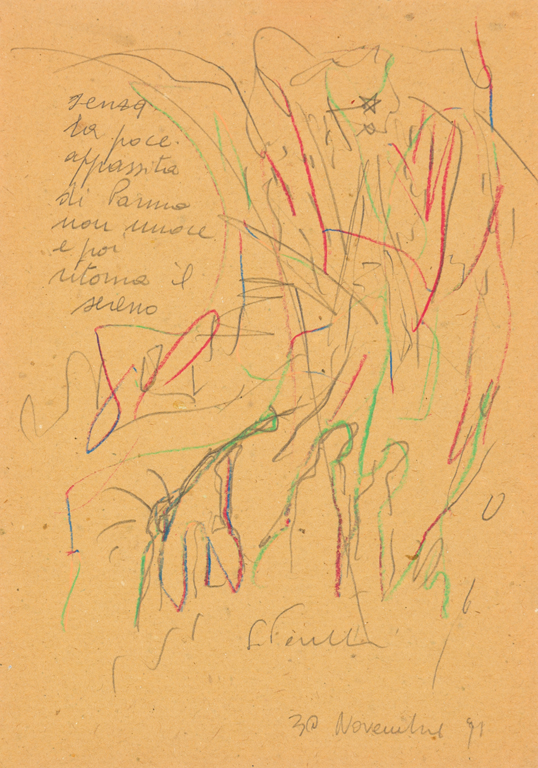 senza
la pace
appassita
di Parma
non nuoce
e poi
ritorna il
sereno
30 Novembre 91